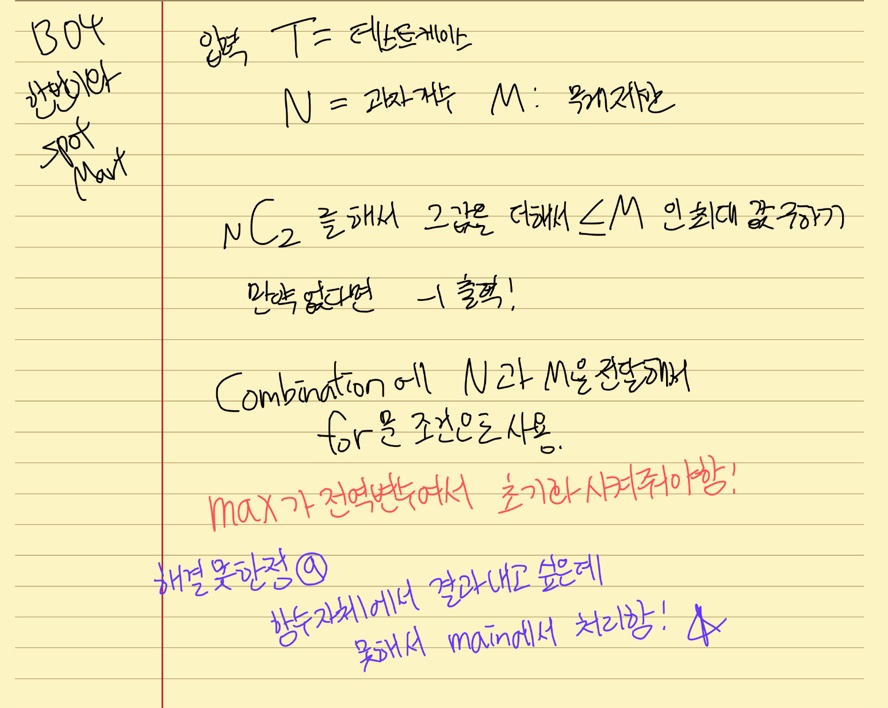 B04
한빈이와
spot
Mart
입력 T = 테스트케이스
N = 과자개수 M : 무게제한
NC2 를 해서 그 값을 더해서 ≤M 인 최대 값 구하기
만약 없다면 -1 출력!
Combination에 N과 M을 전달해서
for문 조건으로 사용.
max가 전역변수여서 초기화 시켜줘야함!
해결못한점 ⓐ
함수자체에서 결과내고 싶은데
못해서 main에서 처리함!